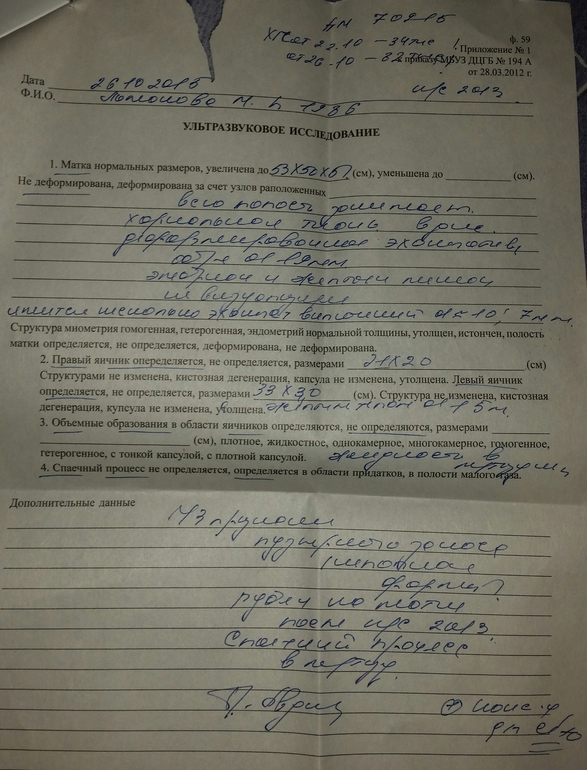 АМ 70215
ХГЧ от 22.10 – 34тыс
ф. 59
Приложение № 1
от 26.10 – 32тыс
к приказу МБУЗ ДЦГБ № 194 А
от 28.03.2012 г.
Дата 26 10 2015
к/с 2013
Ф.И.О. 1986
УЛЬТРАЗВУКОВОЕ ИССЛЕДОВАНИЕ
1. Матка нормальных размеров, увеличена до 53х50х61 (см), уменьшена до (см).
Не деформирована, деформирована за счет узлов раположенных
всю полость занимает
хориальная ткань
деформированное
d 19мм
эмбрион и желточн мешок
не визуализир
несколько эхонегат включений d 10; 7мм.
Структура миометрия гомогенная, гетерогенная, эндометрий нормальной толщины, утолщен, истончен, полость
матки определяется, не определяется, деформирована, не деформирована.
2. Правый яичник опеределяется, не определяется, размерами 31х20 (см)
Структурами не изменена, кистозная дегенерация, капсула не изменена, утолщена. Левый яичник
определяется, не определяется, размерами 33х30 (см). Структура не изменена, кистозная
дегенерация, купсула не изменена, утолщена. d 15м
3. Объемные образования в области яичников определяются, не определяются, размерами
(см), плотное, жидкостное, однокамерное, многокамерное, гомогенное,
гетерогенное, с тонкой капсулой, с плотной капсулой. жидкость в
4. Спаечный процесс не определяется, определяется в области придатков, в полости малого таза.
Дополнительные данные
УЗ признаки
пузырного заноса
неполная
форма?
Рубец на матке
после к/с 2013.
Спаечный процесс
в